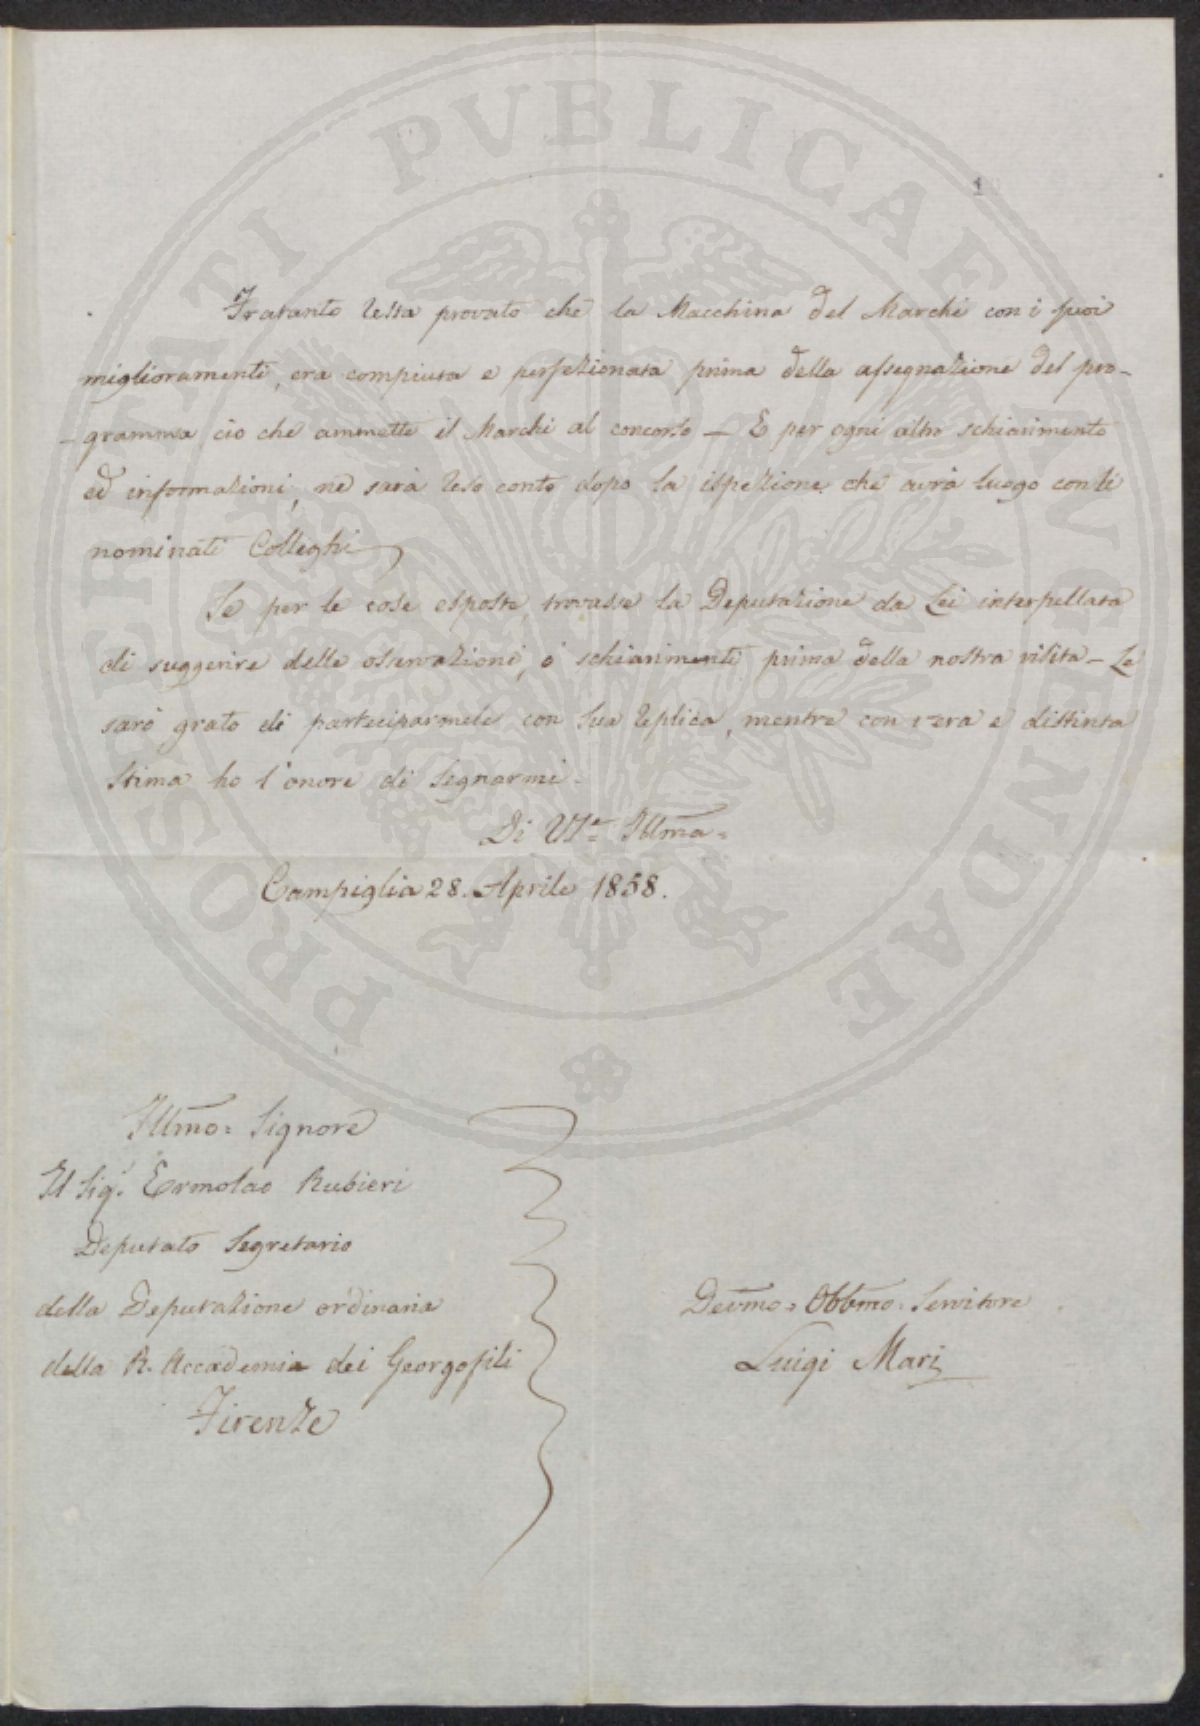 PROSPERITATI PVBLICAE AVGENDAE
1
Fratanto resta provato che la Macchina del Marchi con i suoi
miglioramenti, era compiuta e perfezionata prima della assegnazione del pro-
- gramma ciò che ammette il Marchi al concorso - E per ogni altro schiarimento
ed informazioni, ne sarà reso conto dopo la ispezione che avrà luogo con li
nominati Colleghi
Se per le cose esposte, trovasse la Deputazione da Lei interpellata
di suggerire delle osservazioni, o schiarimenti prima della nostra visita - Le
sarò grato di parteciparmele con sua replica, mentre con vera e distinta
stima ho l'onore di segnarmi -
Di VS.a Illma =
Campiglia 28. Aprile 1858.
Illmo = Signore
Il Sig.r Ermolao Rubieri
Deputato Segretario
della Deputazione ordinaria
della R. Accademia dei Georgofili
Firenze
Devmo = Obbmo = Servitore
Luigi Mari